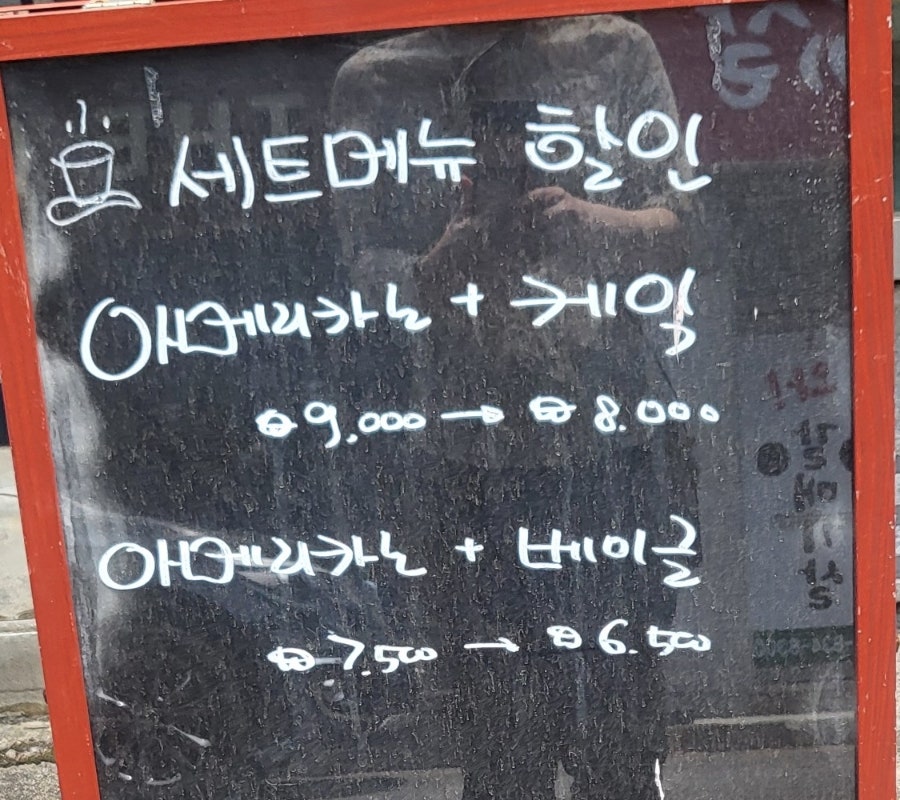 세트메뉴 할인
아메리카노 + 케잌
₩ 9.000 → ₩ 8.000
아메리카노 + 베이글
₩ 7.500 → ₩ 6.500